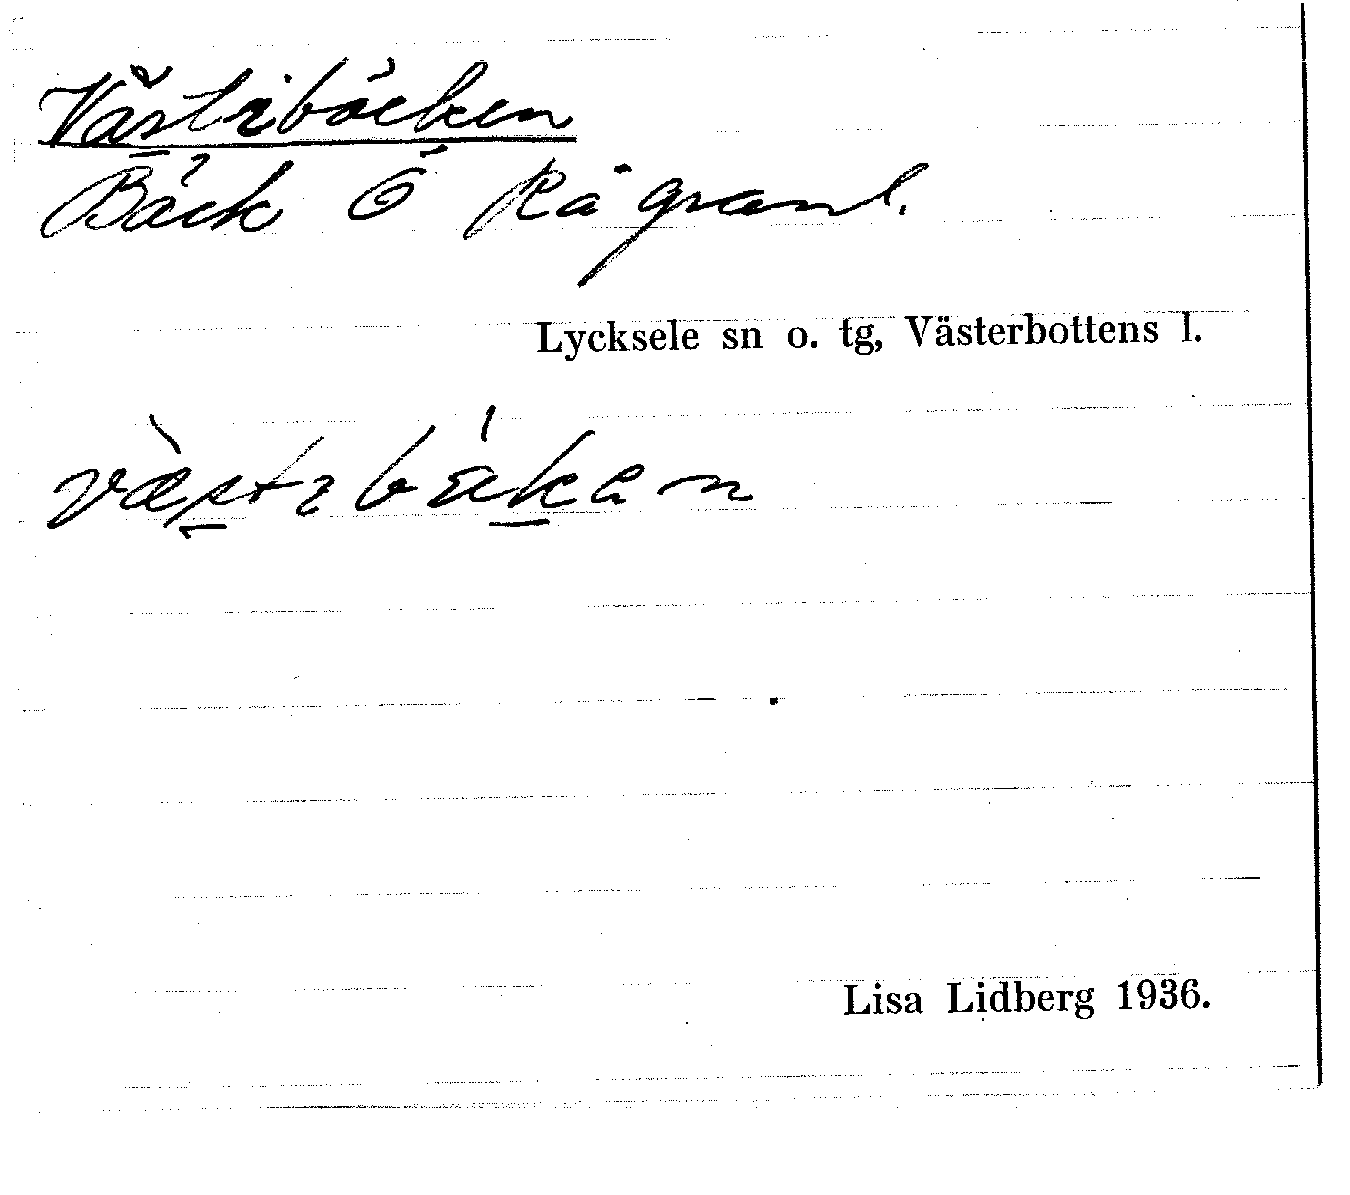 Västibäcken
Bäck Ö Rågranl.
Lycksele sn o. tg, Västerbottens l.
Lisa Lidberg 1936.